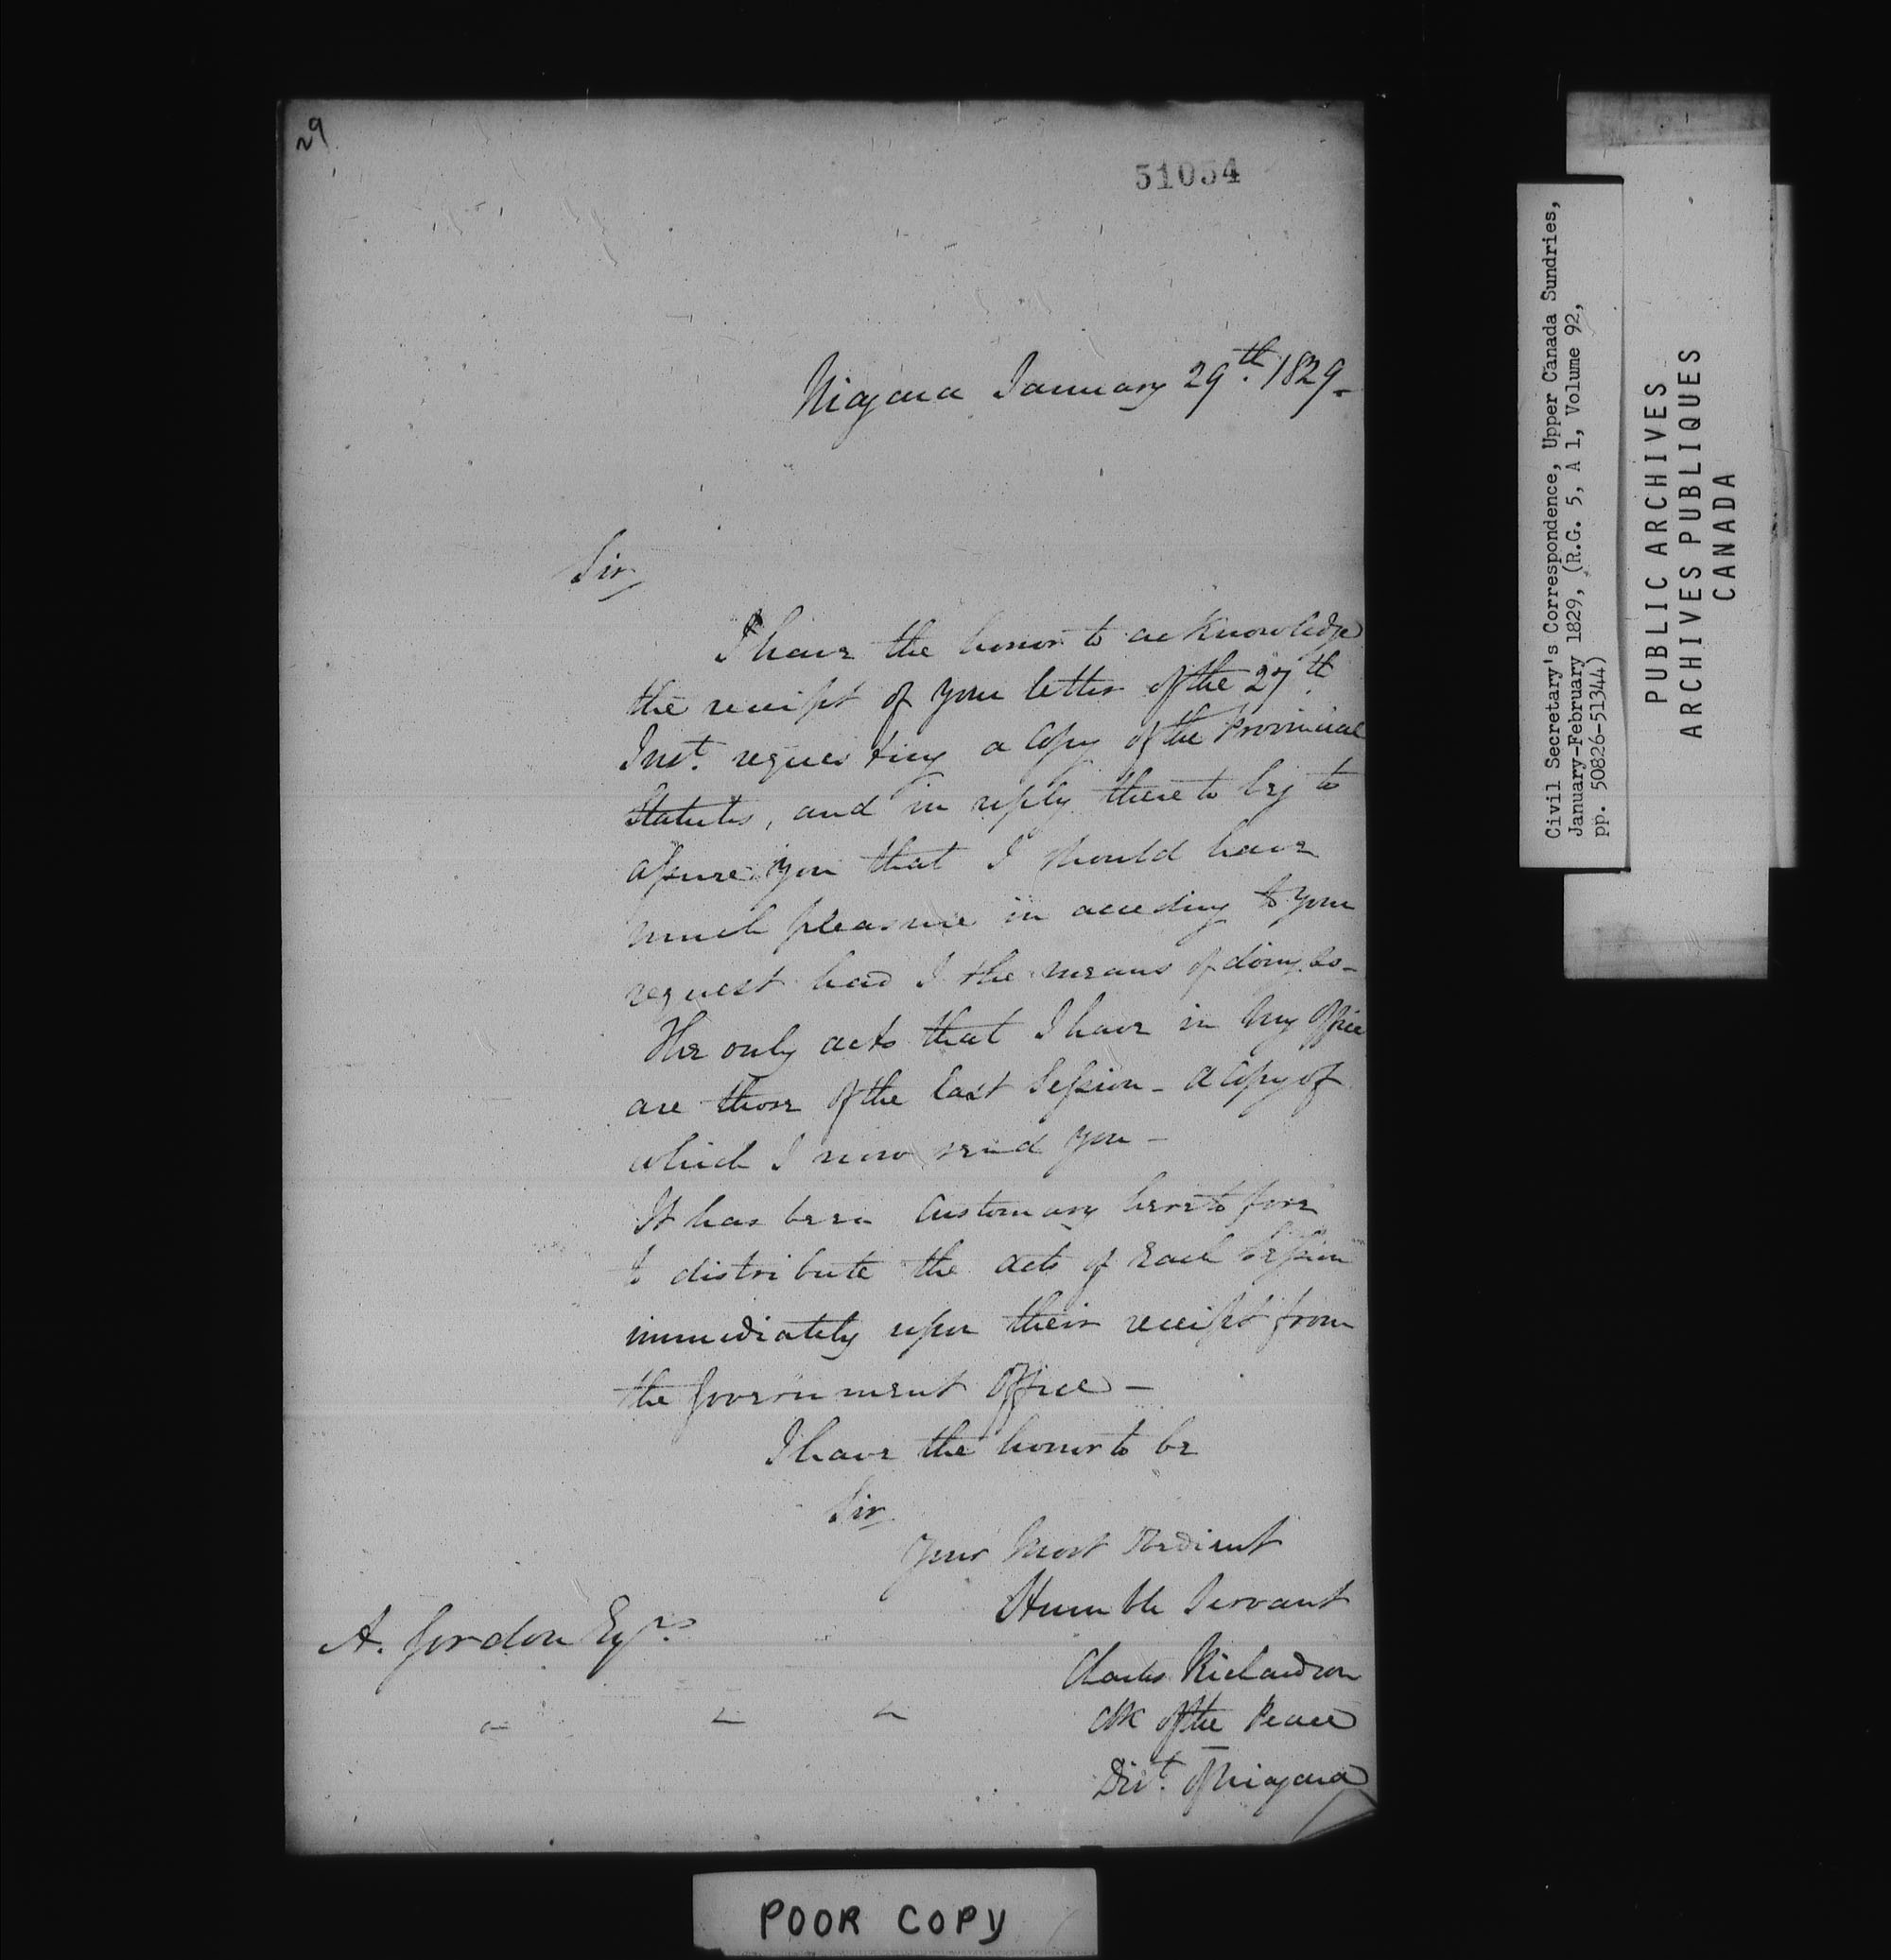 29
51054
Niagara January 29th. 1829-
Sir,
I have the honor to acknowledge
the receipt of your letter of the 27th
Inst. requesting a Copy of the Provincial
Statutes, and in reply thereto beg to
assure you that I should have
much pleasure in acceding to your
request had I the means of doing so-
The only acts that I have in my Office
are those of the last Session - a Copy of
which I now send you -
It has been Customary heretofore
to distribute the acts of each Session
immediately upon their receipt from
the Government Office -
I have the honor to be
Sir,
Your Most Obedient
Humble Servant
A. Gordon Esqr.
Charles Richardson
Clk of the Peace
Dist. of Niagara
POOR COPY
Civil Secretary's Correspondence, Upper Canada Sundries,
January-February 1829, (R.G. 5, A 1, Volume 92,
pp. 50826-51344)
PUBLIC ARCHIVES
ARCHIVES PUBLIQUES
CANADA